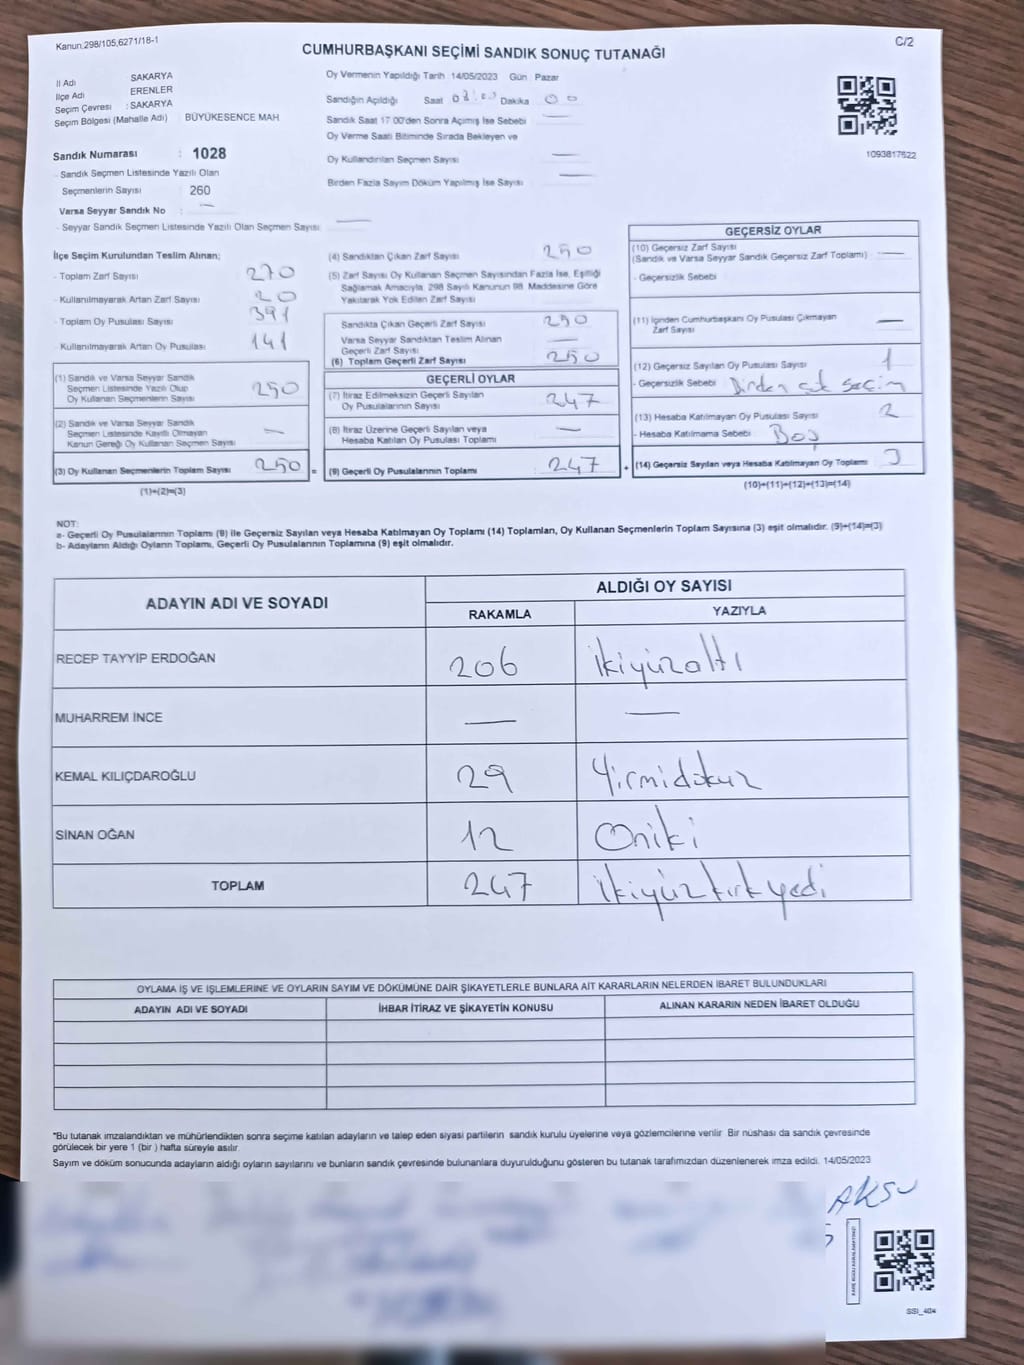 Kanun.298/105,6271/18-1
C/2
CUMHURBAŞKANI SEÇİMİ SANDIK SONUÇ TUTANAĞI
İl Adı SAKARYA
İlçe Adı ERENLER
Seçim Çevresi : SAKARYA
Seçim Bölgesi (Mahalle Adı) BÜYÜKESENCE MAH
Sandık Numarası : 1028
- Sandık Seçmen Listesinde Yazılı Olan
Seçmenlerin Sayısı 260
Varsa Seyyar Sandık No : —
- Seyyar Sandık Seçmen Listesinde Yazılı Olan Seçmen Sayısı: —
Oy Vermenin Yapıldığı Tarih 14/05/2023 Gün Pazar
Sandığın Açıldığı Saat Dakika 00
Sandık Saat 17:00'den Sonra Açımış İse Sebebi —
Oy Verme Saati Bitiminde Sırada Bekleyen ve
Oy Kullandırılan Seçmen Sayısı —
Birden Fazla Sayım Döküm Yapılmış İse Sayısı —
1093817622
İlçe Seçim Kurulundan Teslim Alınan;
- Toplam Zarf Sayısı 270
- Kullanılmayarak Artan Zarf Sayısı 20
- Toplam Oy Pusulası Sayısı 391
- Kullanılmayarak Artan Oy Pusulası 141
(1) Sandık ve Varsa Seyyar Sandık
Seçmen Listesinde Yazılı Olup
Oy Kullanan Seçmenlerin Sayısı 250
(2) Sandık ve Varsa Seyyar Sandık
Seçmen Listesinde Kayıtlı Olmayan
Kanun Gereği Oy Kullanan Seçmen Sayısı —
(3) Oy Kullanan Seçmenlerin Toplam Sayısı 250 =
(1)+(2)=(3)
(4) Sandıktan Çıkan Zarf Sayısı 250
(5) Zarf Sayısı Oy Kullanan Seçmen Sayısından Fazla İse, Eşitliği
Sağlamak Amacıyla, 298 Sayılı Kanunun 98. Maddesine Göre
Yakılarak Yok Edilen Zarf Sayısı
Sandıkta Çıkan Geçerli Zarf Sayısı 250
Varsa Seyyar Sandıktan Teslim Alınan
Geçerli Zarf Sayısı —
(6) Toplam Geçerli Zarf Sayısı 250
GEÇERLİ OYLAR
(7) İtiraz Edilmeksizin Geçerli Sayılan
Oy Pusulalarının Sayısı 247
(8) İtiraz Üzerine Geçerli Sayılan veya
Hesaba Katılan Oy Pusulası Toplamı —
(9) Geçerli Oy Pusulalarının Toplamı 247 +
GEÇERSİZ OYLAR
(10) Geçersiz Zarf Sayısı
(Sandık ve Varsa Seyyar Sandık Geçersiz Zarf Toplamı) —
- Geçersizlik Sebebi
(11) İçinden Cumhurbaşkanı Oy Pusulası Çıkmayan
Zarf Sayısı —
(12) Geçersiz Sayılan Oy Pusulası Sayısı 1
- Geçersizlik Sebebi Birden çok seçim
(13) Hesaba Katılmayan Oy Pusulası Sayısı 2
- Hesaba Katılmama Sebebi Boş
(14) Geçersiz Sayılan veya Hesaba Katılmayan Oy Toplamı 3
(10)+(11)+(12)+(13)=(14)
NOT:
a- Geçerli Oy Pusulalarının Toplamı (9) ile Geçersiz Sayılan veya Hesaba Katılmayan Oy Toplamı (14) Toplamları, Oy Kullanan Seçmenlerin Toplam Sayısına (3) eşit olmalıdır. (9)+(14)=(3)
b- Adayların Aldığı Oyların Toplamı, Geçerli Oy Pusulalarının Toplamına (9) eşit olmalıdır.
ADAYIN ADI VE SOYADI ALDIĞI OY SAYISI
RAKAMLA YAZIYLA
RECEP TAYYİP ERDOĞAN 206 ikiyüzaltı
MUHARREM İNCE — —
KEMAL KILIÇDAROĞLU 29 Yirmidokuz
SİNAN OĞAN 12 Oniki
TOPLAM 247 ikiyüzkırkyedi
OYLAMA İŞ VE İŞLEMLERİNE VE OYLARIN SAYIM VE DÖKÜMÜNE DAİR ŞİKAYETLERLE BUNLARA AİT KARARLARIN NELERDEN İBARET BULUNDUKLARI
ADAYIN ADI VE SOYADI İHBAR İTİRAZ VE ŞİKAYETİN KONUSU ALINAN KARARIN NEDEN İBARET OLDUĞU
*Bu tutanak imzalandıktan ve mühürlendikten sonra seçime katılan adayların ve talep eden siyasi partilerin sandık kurulu üyelerine veya gözlemcilerine verilir. Bir nüshası da sandık çevresinde
görülecek bir yere 1 (bir ) hafta süreyle asılır.
Sayım ve döküm sonucunda adayların aldığı oyların sayılarını ve bunların sandık çevresinde bulunanlara duyurulduğunu gösteren bu tutanak tarafımızdan düzenlenerek imza edildi. 14/05/2023
AKSU
SSI_404